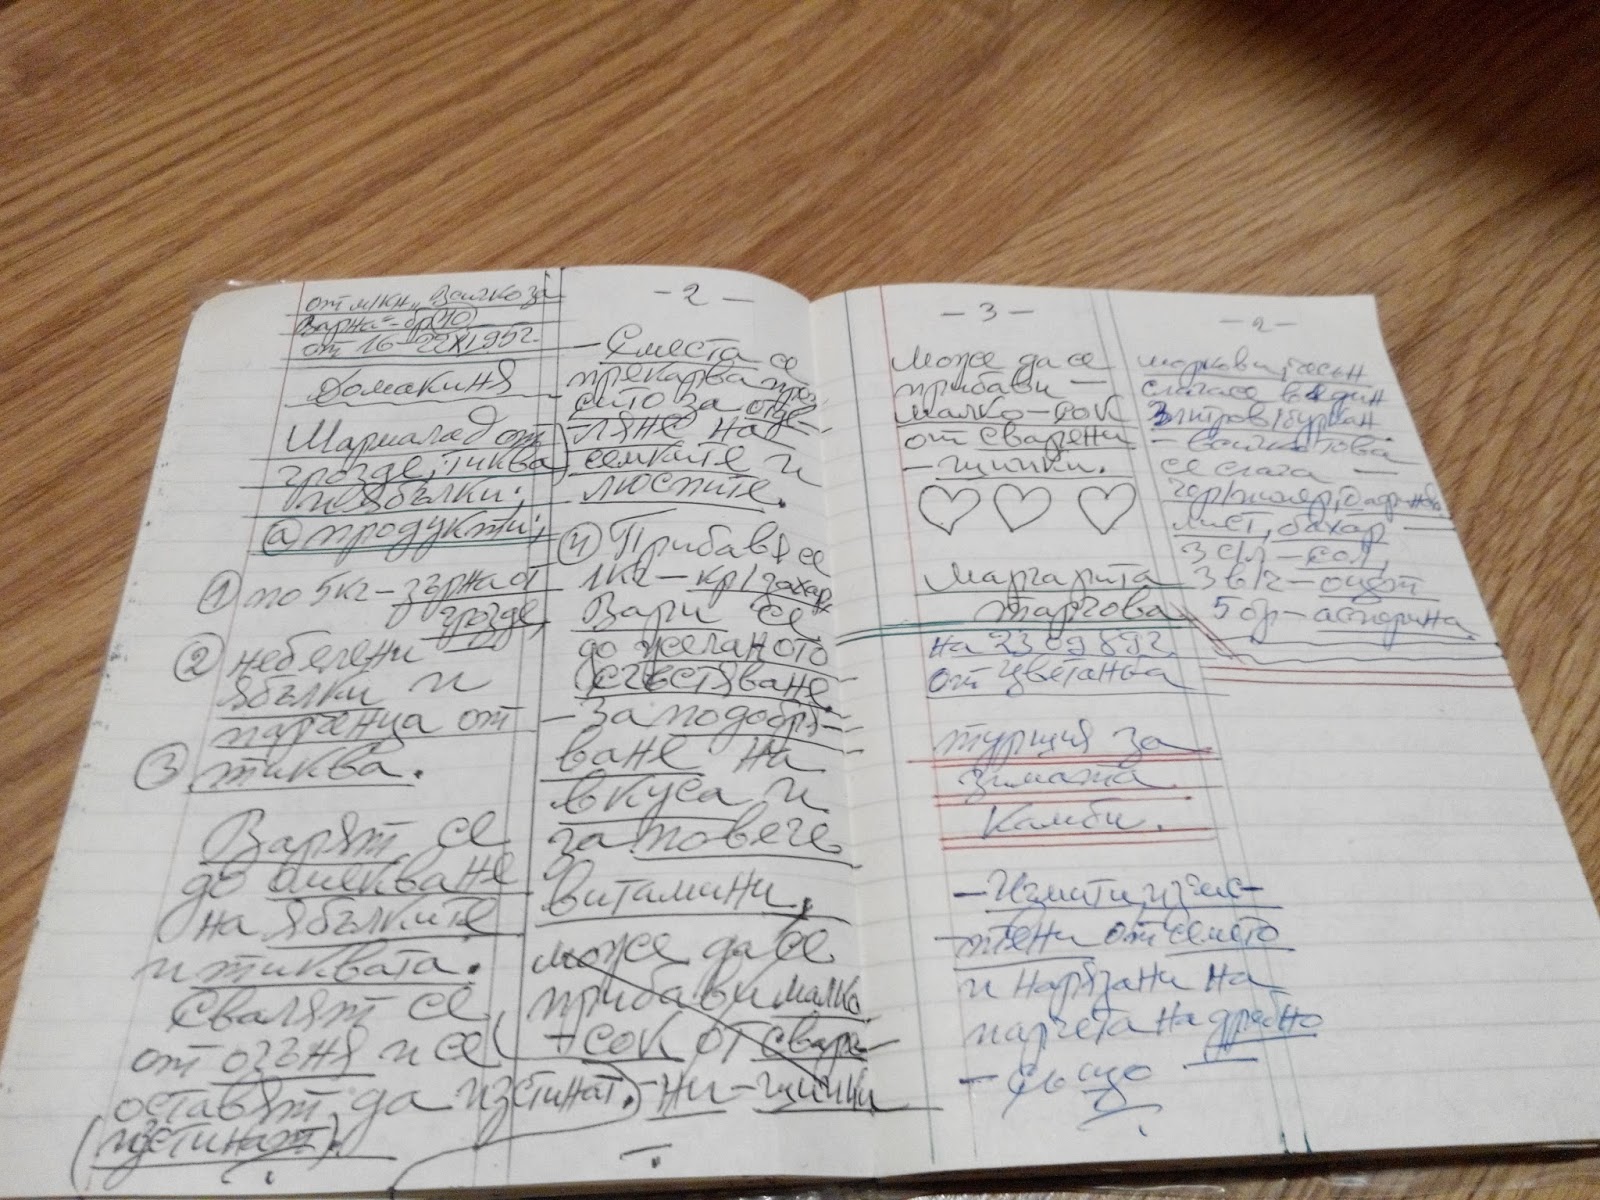 от м/кн „Всичко за
Варна" - бр (10)
от 16-22XI95г.
Домакиня
Мармалад от
грозде, тиква
и ябълки:
а продукти:
① по 5кг - зърна от
грозде,
② небелени
ябълки и
парченца от
③ тиква.
Варят се
до омекване
на ябълките
и тиквата.
Свалят се
от огъня и се
оставят да изстинат.
(изстинат).
- 2 -
- Сместа се
прекарва през
сито за отде-
ляне на
семките и
люспите.
④ Прибавя се
1кг - кр/захар
Вари се
до желаното
сгъстяване.
- За подобря-
ване на
вкуса и
за повече
витамини.
може да се
прибави малко
сок от сваре-
-ни - шипки
- 3 -
Може да се
прибави -
малко - сок
от сварени
- шипки.
Маргарита
Търгова
на 23 09 89г.
от Цветанка
туршия за
зимата
Камби.
- Измити, изчис-
тени от семето
и нарязани на
парчета на дребно
- Също
- 2 -
моркови, чесън
слага се в един
3литров/буркан
- всичко това
се слага -
чер/пипер, дафинов
лист, бахар
3 с/л - сол,
3 в/г - оцет
5 бр - аспирина.